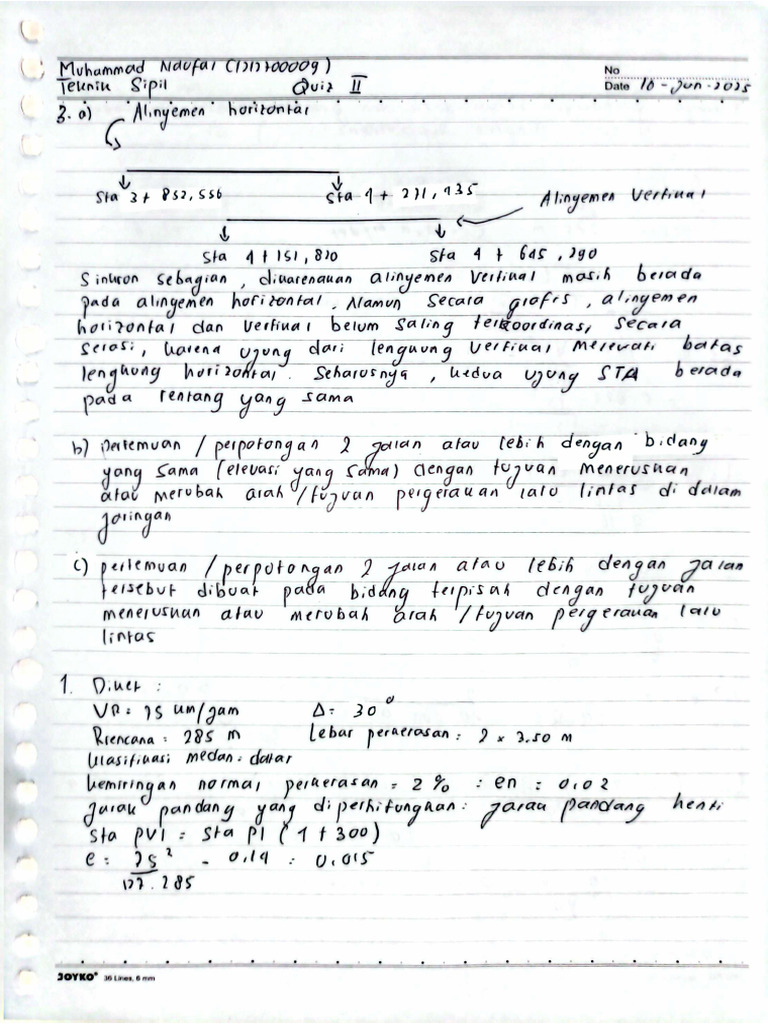 Muhammad Naufal (1212700009)
No
Teknik Sipil Quiz II
Date 10 - Jun - 2025
3. a) Alinyemen horizontal
Sta 3 + 852,556 Sta 4 + 271,435 Alinyemen Vertikal
Sta 4 + 151,820 Sta 4 + 645,290
Sinkron sebagian, dikarenakan alinyemen vertikal masih berada
pada alinyemen horizontal. Namun secara grafis, alinyemen
horizontal dan vertikal belum saling terkoordinasi, secara
serasi, karena ujung dari lengkung vertikal melewati batas
lengkung horizontal. Seharusnya, kedua ujung STA berada
pada rentang yang sama
b) pertemuan / perpotongan 2 jalan atau lebih dengan bidang
yang sama (elevasi yang sama) dengan tujuan meneruskan
atau merubah arah / tujuan pergerakan lalu lintas di dalam
jaringan
c) pertemuan / perpotongan 2 jalan atau lebih dengan jalan
tersebut dibuat pada bidang terpisah dengan tujuan
meneruskan atau merubah arah / tujuan pergerakan lalu
lintas
1. Diket :
VR = 75 km/jam Δ = 30°
Rrencana = 285 m Lebar perkerasan : 2 x 3.50 m
klasifikasi medan : datar
kemiringan normal perkerasan = 2 % : en = 0.02
jarak pandang yang diperhitungkan : jarak pandang henti
Sta PVI = Sta PI (4 + 300)
e = 75² - 0.14 = 0.015
127 . 285
JOYKO® 36 Lines, 6 mm